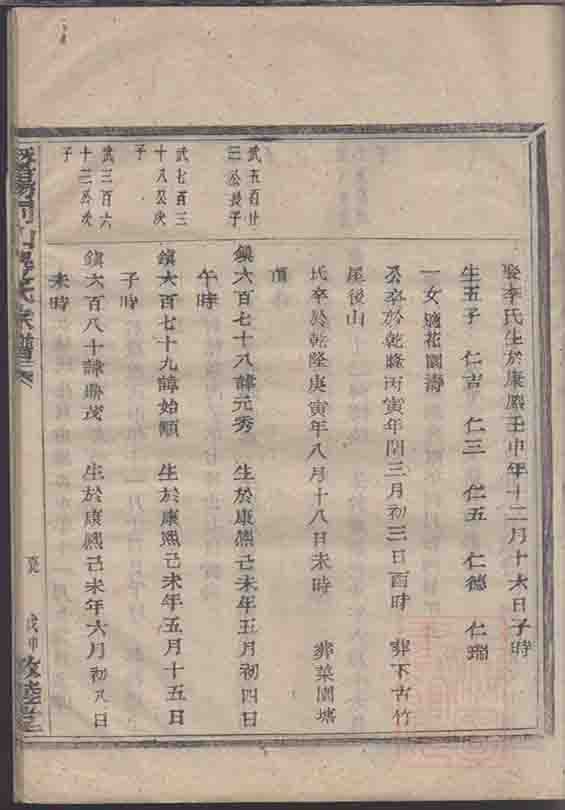 娶李氏生於康熙壬申年十二月十六日子時
生五子 仁吉 仁三 仁五 仁德 仁瑞
一女適花園濤
公卒於乾隆丙寅年閏三月初三日酉時 葬下古竹
尾後山
氏卒於乾隆庚寅年八月十八日未時 葬菜園塘
武五百廿
三公長子
鎮六百七十八諱元秀 生於康熙己未年五月初四日
午時
武七百三
十八公次
子
鎮六百七十九諱始順 生於康熙己未年五月十五日
子時
武三百六
十三公次
子
鎮六百八十諱鼎茂 生於康熙己未年六月初八日
未時
氏宗譜
戊申 敦睦堂